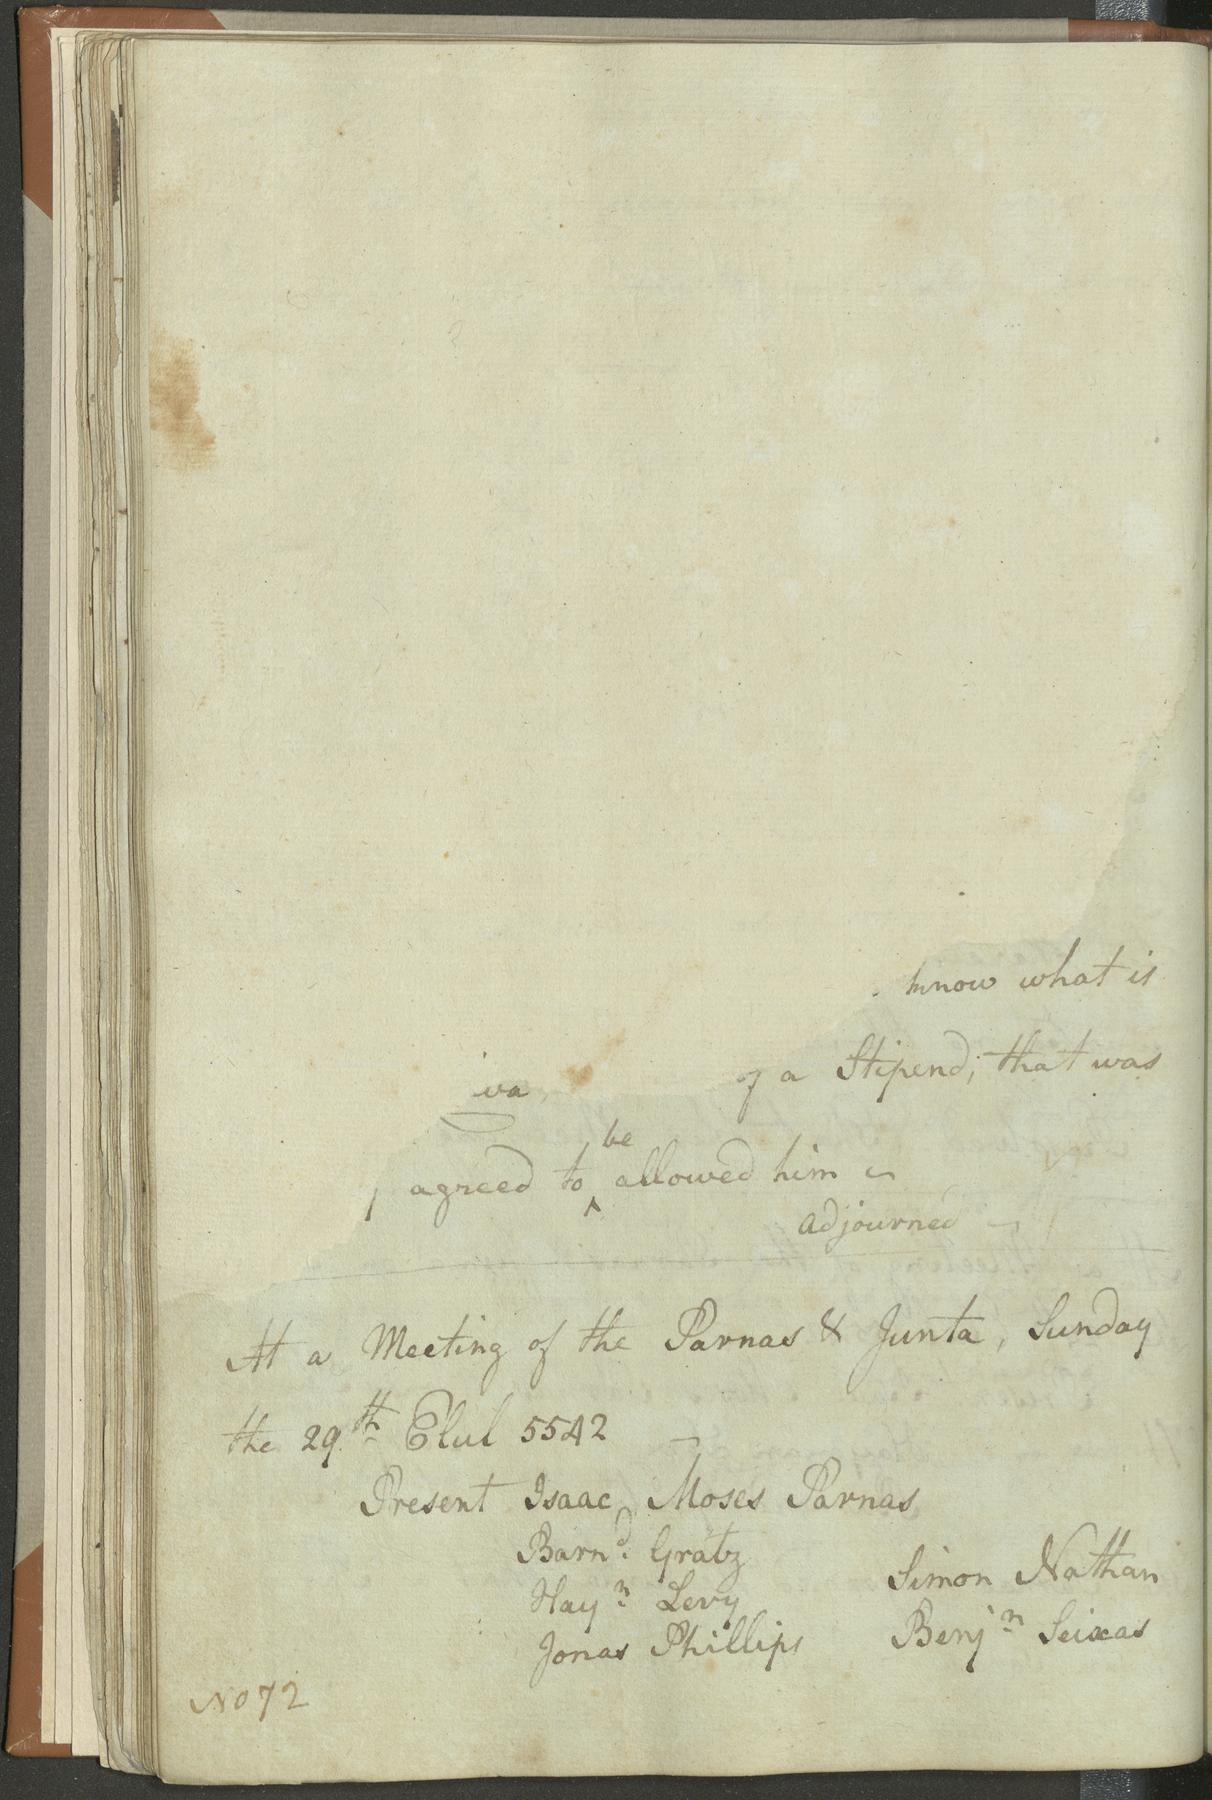 know what is
of a Stipend; that was
agreed to be allowed him
adjourned
At a Meeting of the Parnas & Junta, Sunday
the 29th Elul 5542
Present Isaac Moses Parnas
Barnd. Gratz
Simon Nathan
Hayn. Levy
Jonas Phillips
Benjn Seixas
No 72